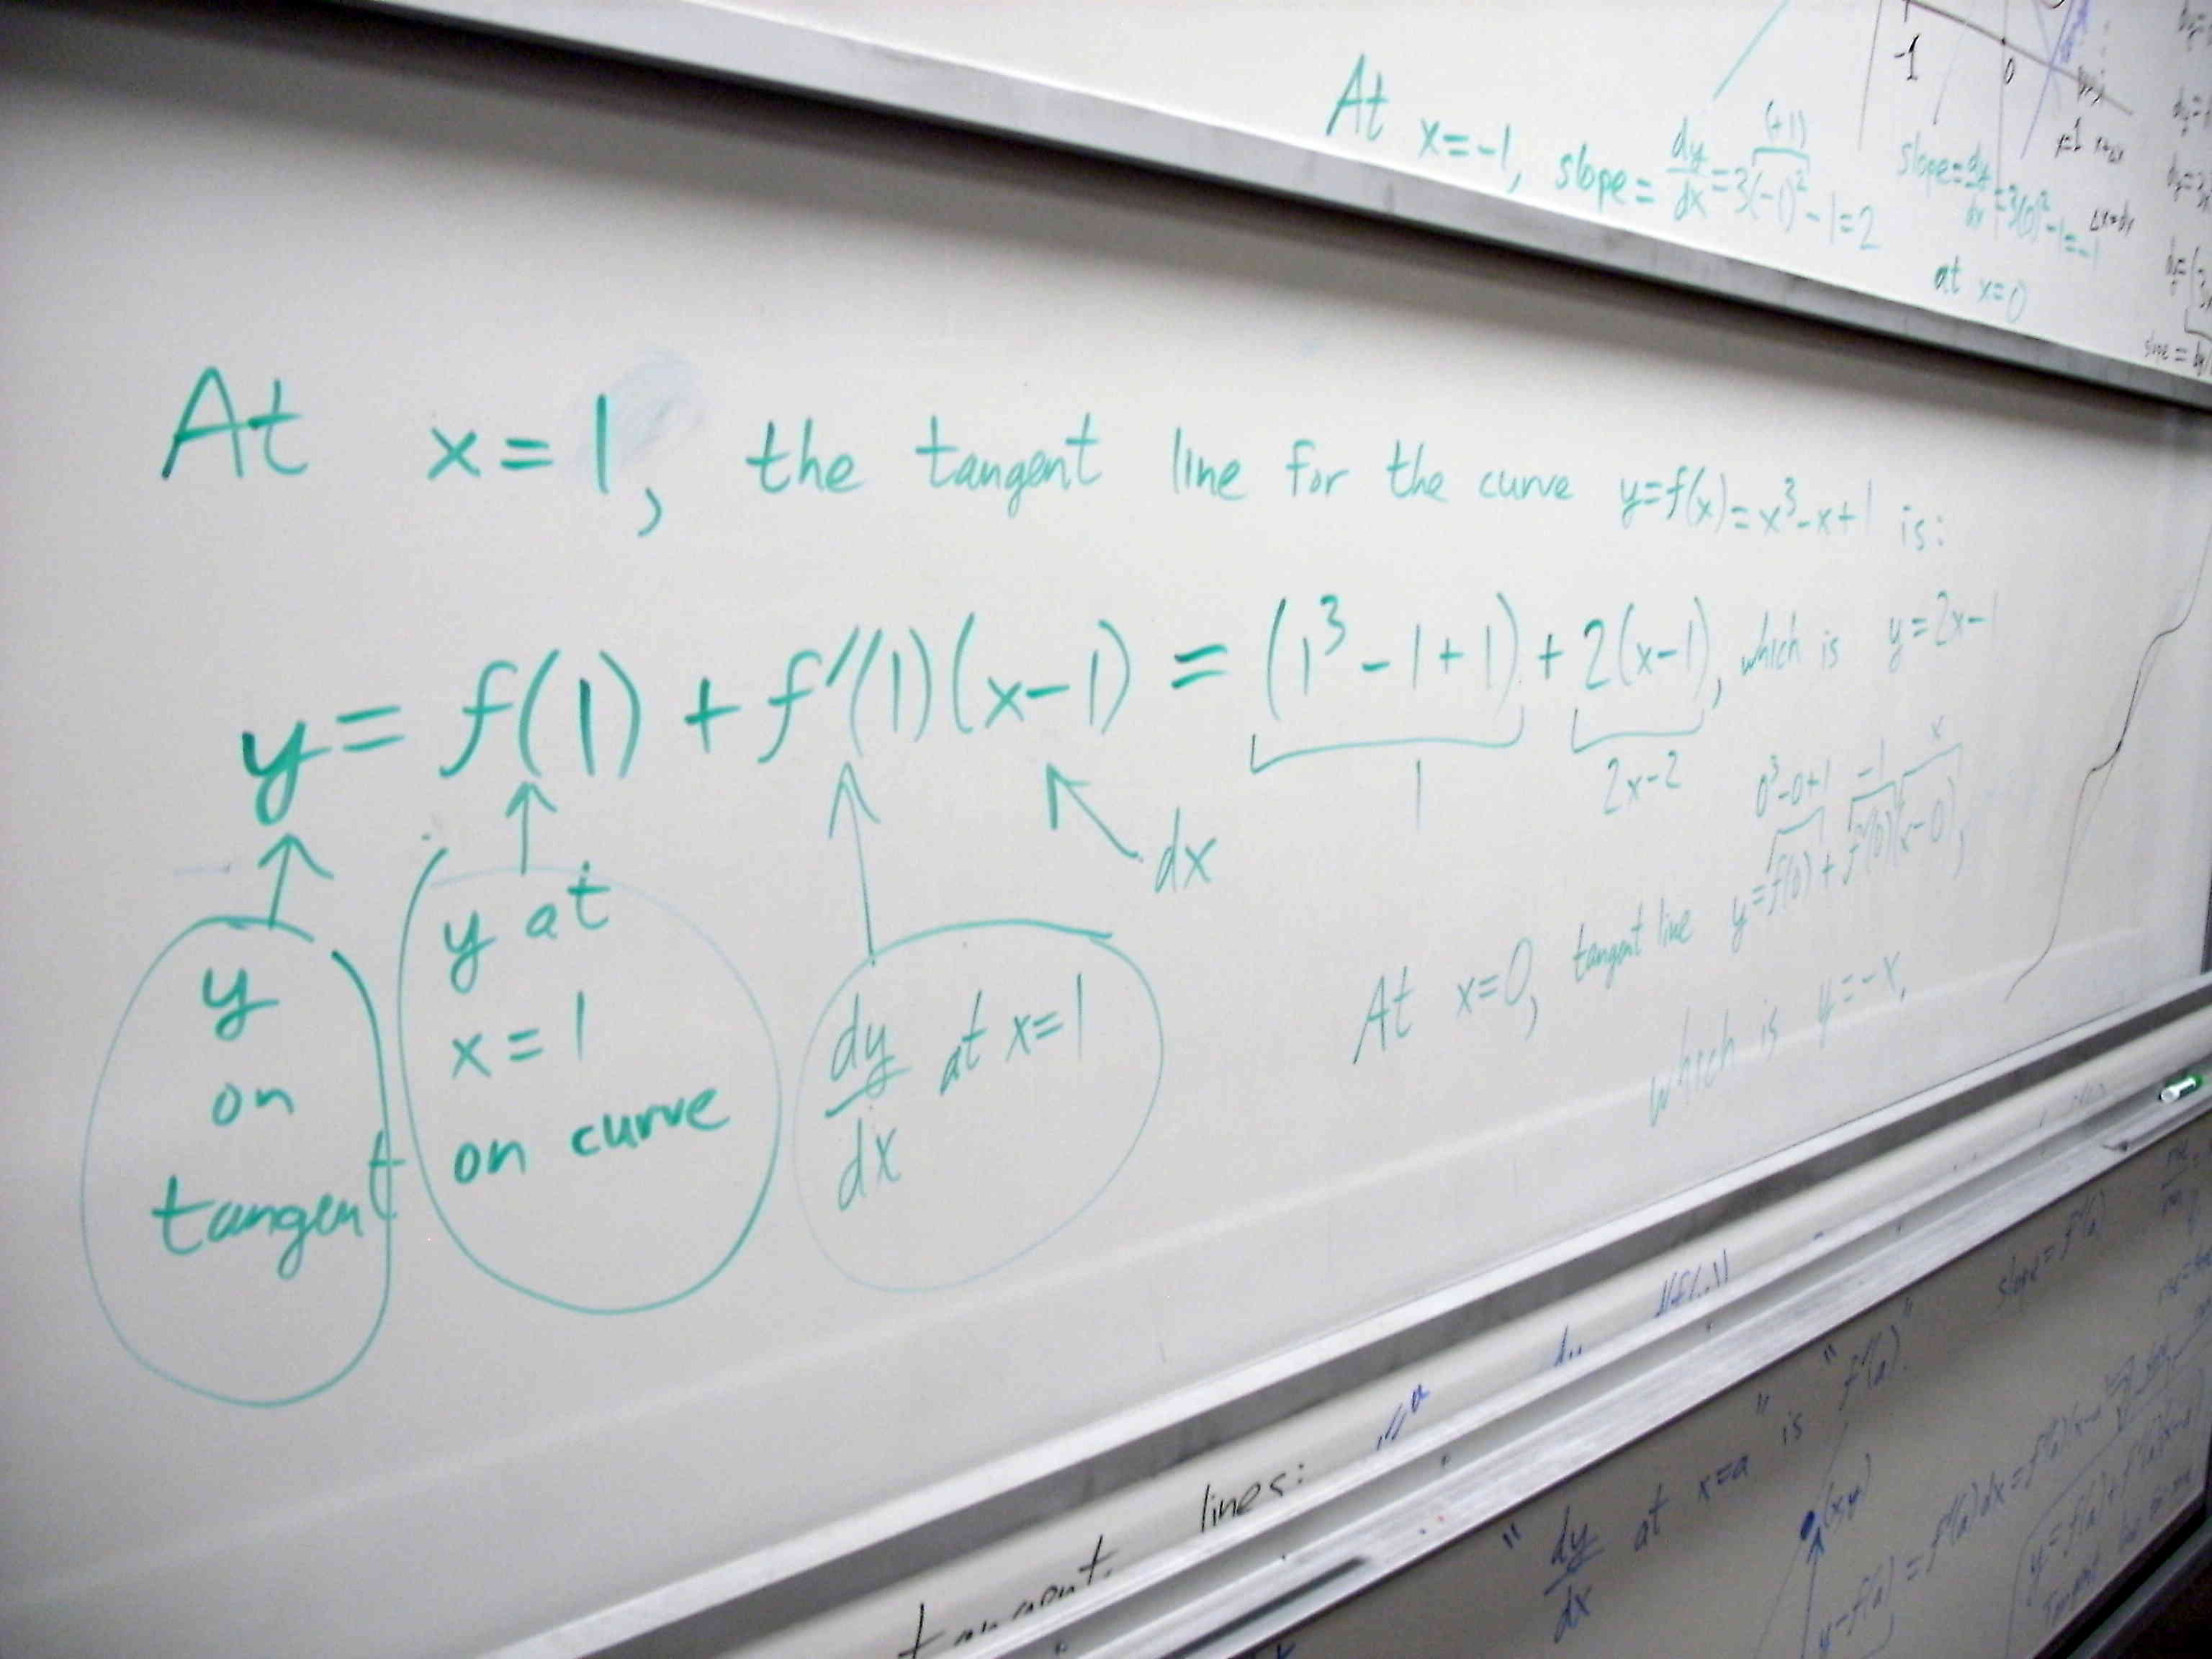 -1 0
At x=-1, slope= dy/dx = 3(-1)² - 1 = 2
(+1)
slope= dy/dx = 3(0)² - 1 = -1
at x=0
x=1
Δx=dx
slope =
At x=1, the tangent line for the curve y=f(x)=x³-x+1 is:
y= f(1) + f'(1)(x-1) = (1³-1+1) + 2(x-1), which is y=2x-1
1 2x-2
dx
y on tangent
y at x=1 on curve
dy/dx at x=1
0³-0+1 -1 x
At x=0, tangent line y=f(0) + f'(0)(x-0),
which is y=-x.
tangent lines:
"dy/dx at x=a" is "f'(a)". slope= f'(a)
(x,y)
y-f(a) = f'(a)dx = f'(a)(x-a)
y=f(a)+f'(a)(x-a)